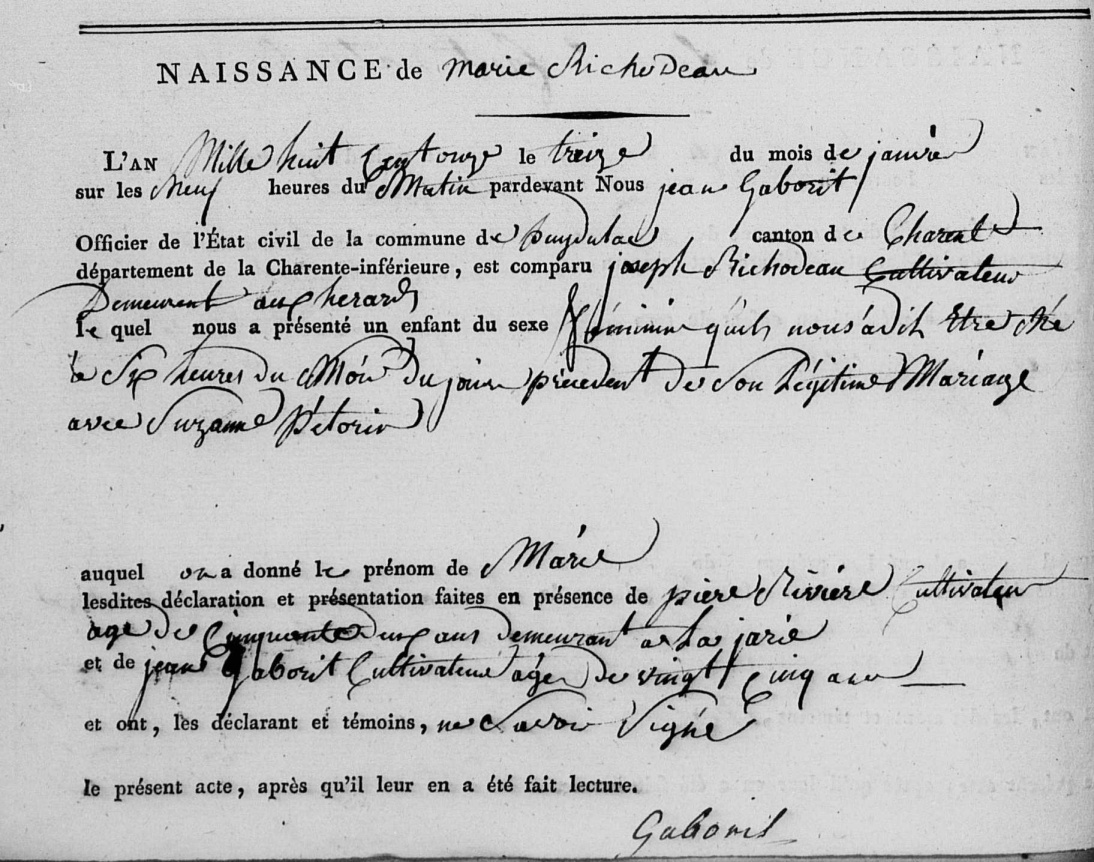 NAISSANCE de marie Richodeau
L'AN Mille huit Cent onze le treize du mois de janvier
sur les Neuf heures du Matin pardevant Nous jean Gaborit
Officier de l'État civil de la commune de Puydulac canton de Charente
département de la Charente-inférieure, est comparu joseph Richodeau Cultivateur
Demeurent aux herards
le quel nous a présenté un enfant du sexe féminin qu'ils nous a dit Etre Né
à Six heures du Soir Du jour précedent de son Légitime Mariage
avec Suzanne Pétorin
auquel on a donné le prénom de Marie
lesdites déclaration et présentation faites en présence de pière Rivière Cultivateur
agé De Cinquante Deux ans demeurant a La jarie
et de jean Gaborit Cultivateur agé De vingt Cinq ans
et ont, les déclarant et témoins, ne Savoir Signé
le présent acte, après qu'il leur en a été fait lecture.
Gaborit